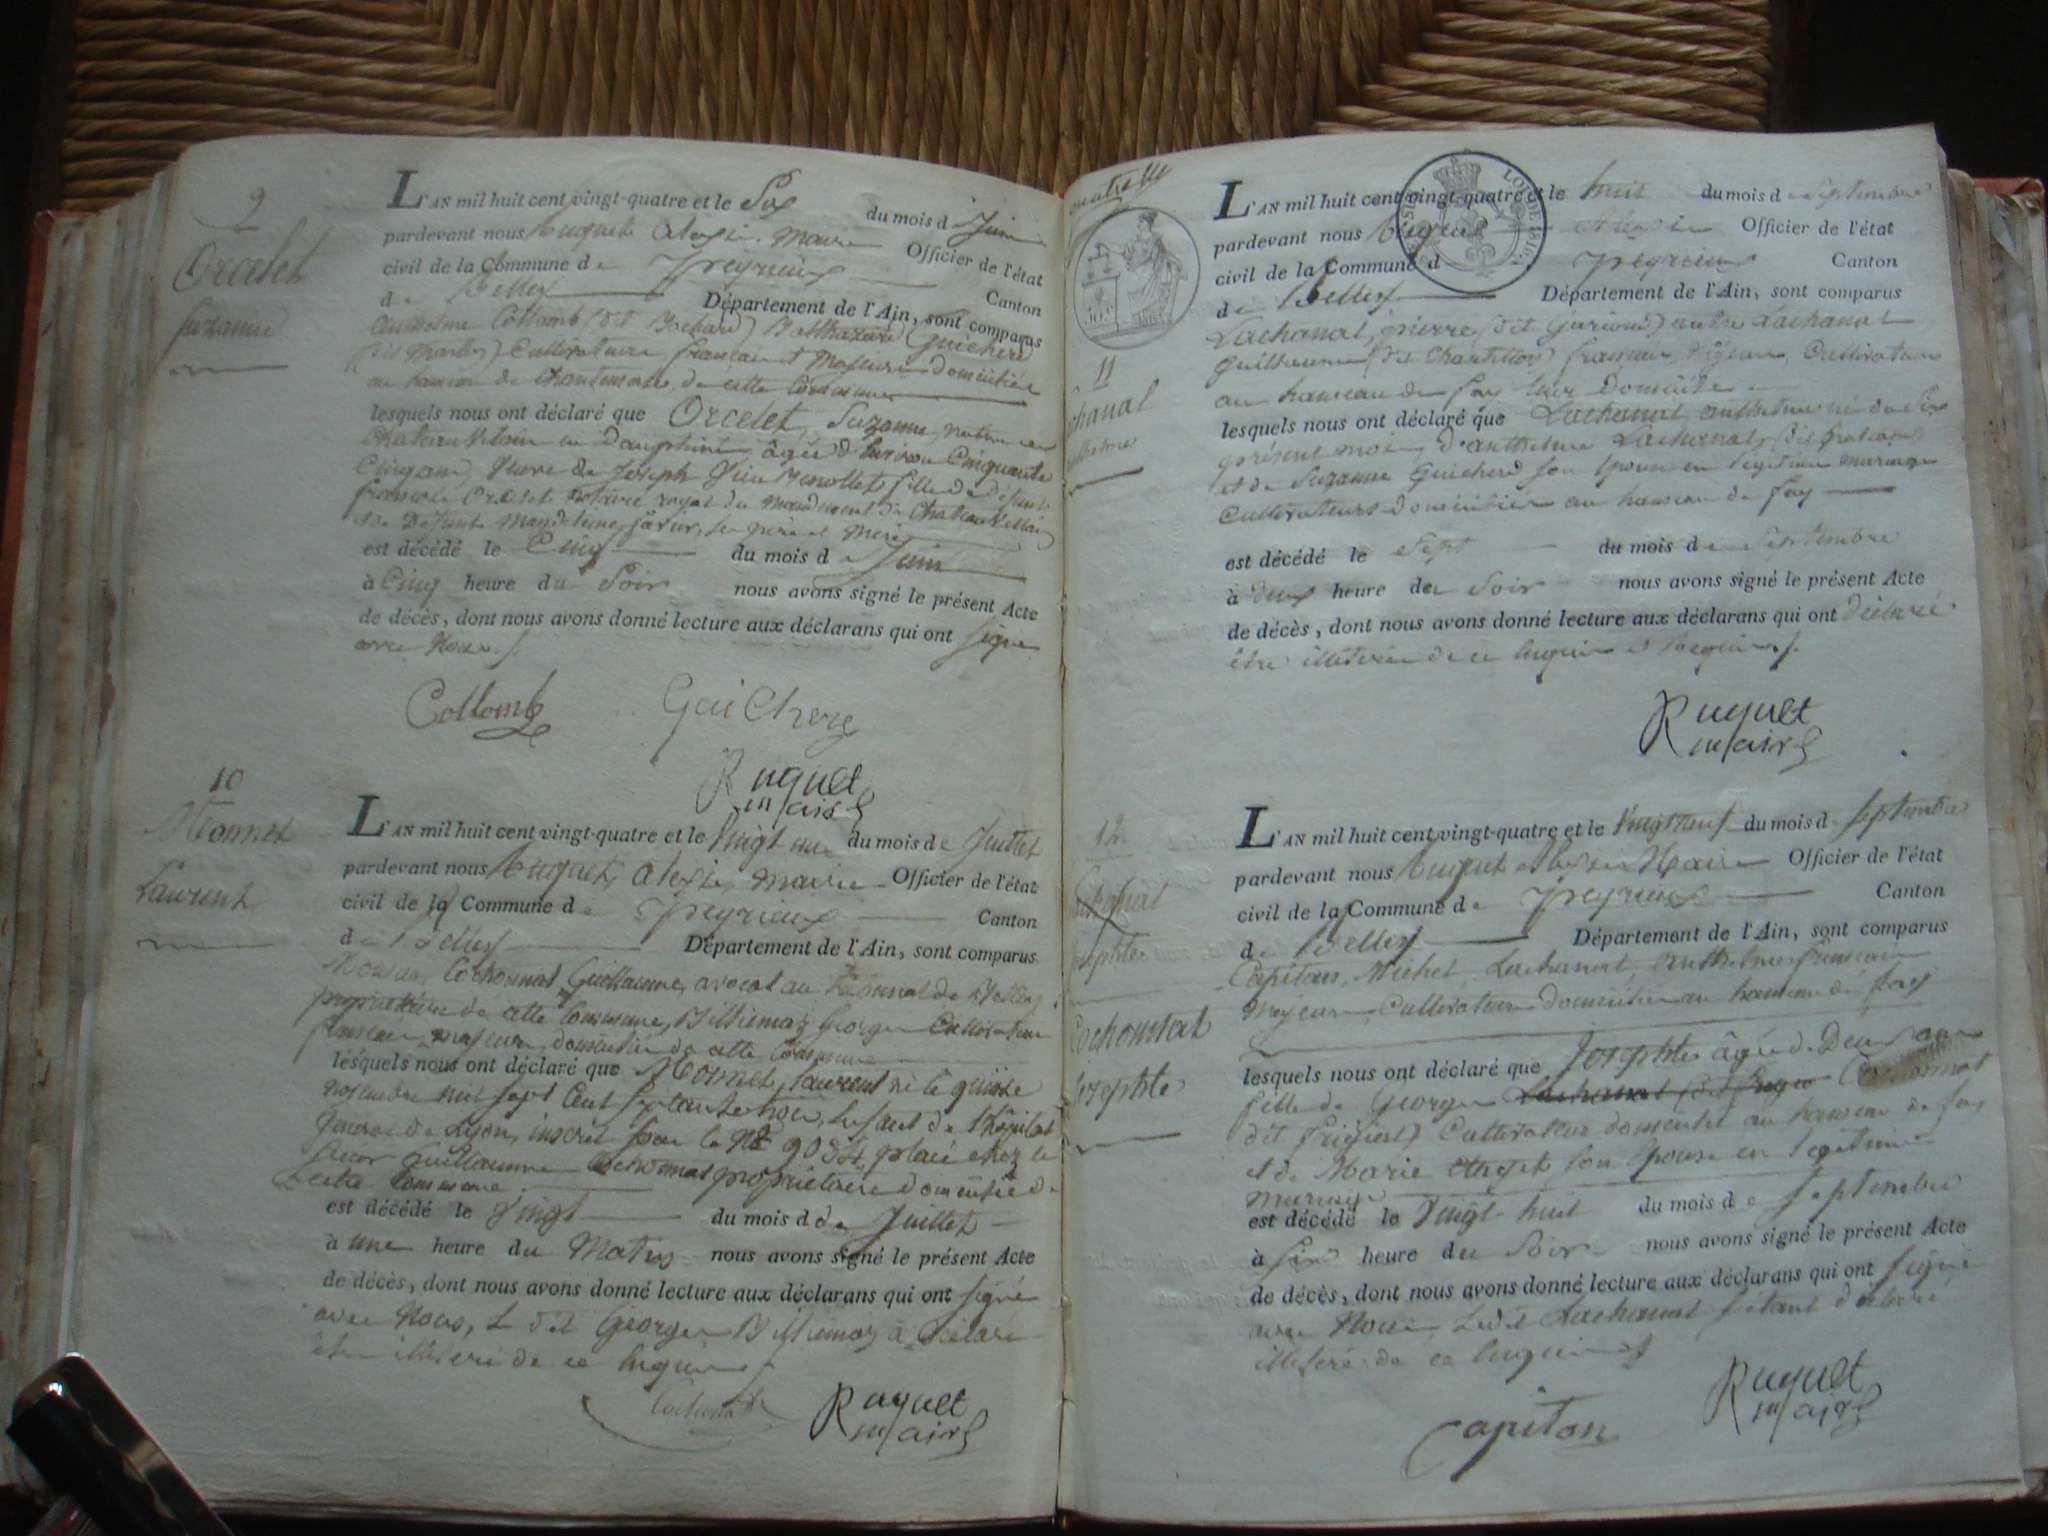 9
Orcelet
Suzanne
L'AN mil huit cent vingt-quatre et le Six du mois de Juin
pardevant nous Ruquet Alexis Maire Officier de l'état
civil de la Commune de Peyrieux Canton
de Belley Département de l'Ain, sont comparus
Collomb (dit Balthazard Guicherd
Cultivateurs français Majeurs domiciliés
au hameau de de cette Commune
lesquels nous ont déclaré que Orcelet, Suzanne, native de
en Dauphiné, âgée d'Environ Cinquante
Cinq ans, Veuve de Joseph fille de Défunt
françois Orcelet Notaire royal du mandement de
et de Défunte Magdeleine ses père et mère
est décédé le Cinq du mois de Juin
à Cinq heure du Soir nous avons signé le présent Acte
de décès, dont nous avons donné lecture aux déclarans qui ont Signé
avec Nous
Collomb Guicherd
Ruquet
maire
10
Monnet
Laurent
L'AN mil huit cent vingt-quatre et le Vingt un du mois de Juillet
pardevant nous Ruquet, Alexis, Maire Officier de l'état
civil de la Commune de Peyrieux Canton
de Belley Département de l'Ain, sont comparus
Cochonat Guillaume, avocat au Tribunal de Belley,
propriétaire de cette Commune, Billiemaz George Cultivateur
français, majeurs, domiciliés de cette Commune
lesquels nous ont déclaré que Monnet, Laurent né le quinze
novembre mil sept Cent soixante trois, Enfant de l'hôpital
général de Lyon, inscrit sous le N° 9034, placé chez le
Sieur Guillaume Cochonat propriétaire domicilié de
Cette Commune
est décédé le Vingt du mois d de Juillet
à une heure du Matin nous avons signé le présent Acte
de décès, dont nous avons donné lecture aux déclarans qui ont Signé
avec Nous, Le dit George Billiemaz a Déclaré
être illitéré de ce Enquis
Cochonat
Ruquet
maire
LOI DE 1816
11
L'AN mil huit cent vingt-quatre et le huit du mois de Septembre
pardevant nous Ruquet Alexis Officier de l'état
civil de la Commune d Peyrieux Canton
de Belley Département de l'Ain, sont comparus
Lachanal, pierre (dit autre Lachanal
Guillaume (dit Chatillon) français, Majeurs, Cultivateurs
au hameau de Fay leur Domicile
lesquels nous ont déclaré que Lachanal, anthelme né du Six
présent mois, d'anthelme Lachanal, (dit
et de Suzanne Guicherd son Epouse en légitime mariage
Cultivateurs domiciliés au hameau de Fay
est décédé le Sept du mois de Septembre
à deux heure du Soir nous avons signé le présent Acte
de décès, dont nous avons donné lecture aux déclarans qui ont Déclaré
être illitérés de ce Enquis et Requis
Ruquet
maire
12
Cochonnat
Josephte
L'AN mil huit cent vingt-quatre et le Vingt neuf du mois d Septembre
pardevant nous Ruquet Alexis Maire Officier de l'état
civil de la Commune de Peyrieux Canton
de Belley Département de l'Ain, sont comparus
Capitan, Michel, Lachanal, anthelme, français
Majeurs, Cultivateurs domiciliés au hameau de Fay
lesquels nous ont déclaré que Josephte âgée de Deux ans
fille de George Cochonnat
dit Cultivateur domicilié au hameau de Fay
et de Marie son Epouse en légitime
mariage
est décédé le Vingt huit du mois de Septembre
à Six heure du Soir nous avons signé le présent Acte
de décès, dont nous avons donné lecture aux déclarans qui ont signé
avec Nous, Ledit Lachanal s'étant déclaré
illitéré de ce Enquis
Capitan
Ruquet
maire